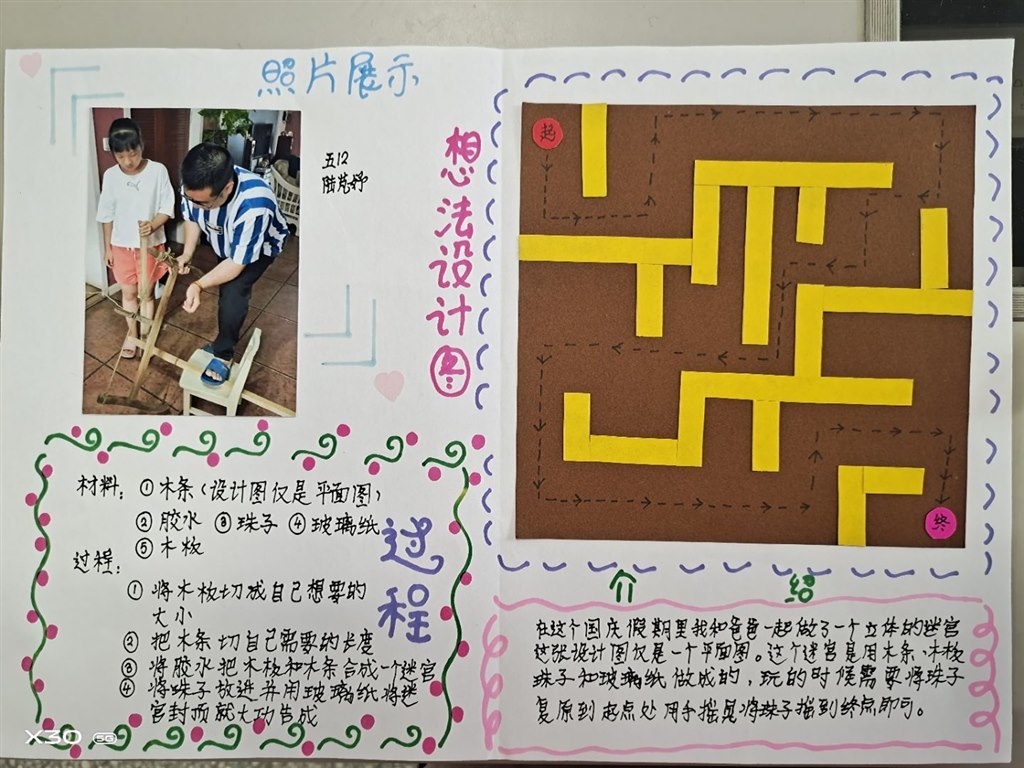 照片展示
五12
想法设计图
起
终
材料：①木条（设计图仅是平面图）
②胶水 ③珠子 ④玻璃纸
⑤木板
过程：
①将木板切成自己想要的
大小
②把木条切自己需要的长度
③将胶水把木板和木条合成一个迷宫
④将珠子放进并用玻璃纸将迷
宫封顶就大功告成
过程
介绍
在这个国庆假期里我和爸爸一起做了一个立体的迷宫
这张设计图仅是一个平面图。这个迷宫是用木条、木板
珠子和玻璃纸做成的，玩的时候需要将珠子
复原到起点处用手摇晃将珠子摇到终点即可。
X30 5G